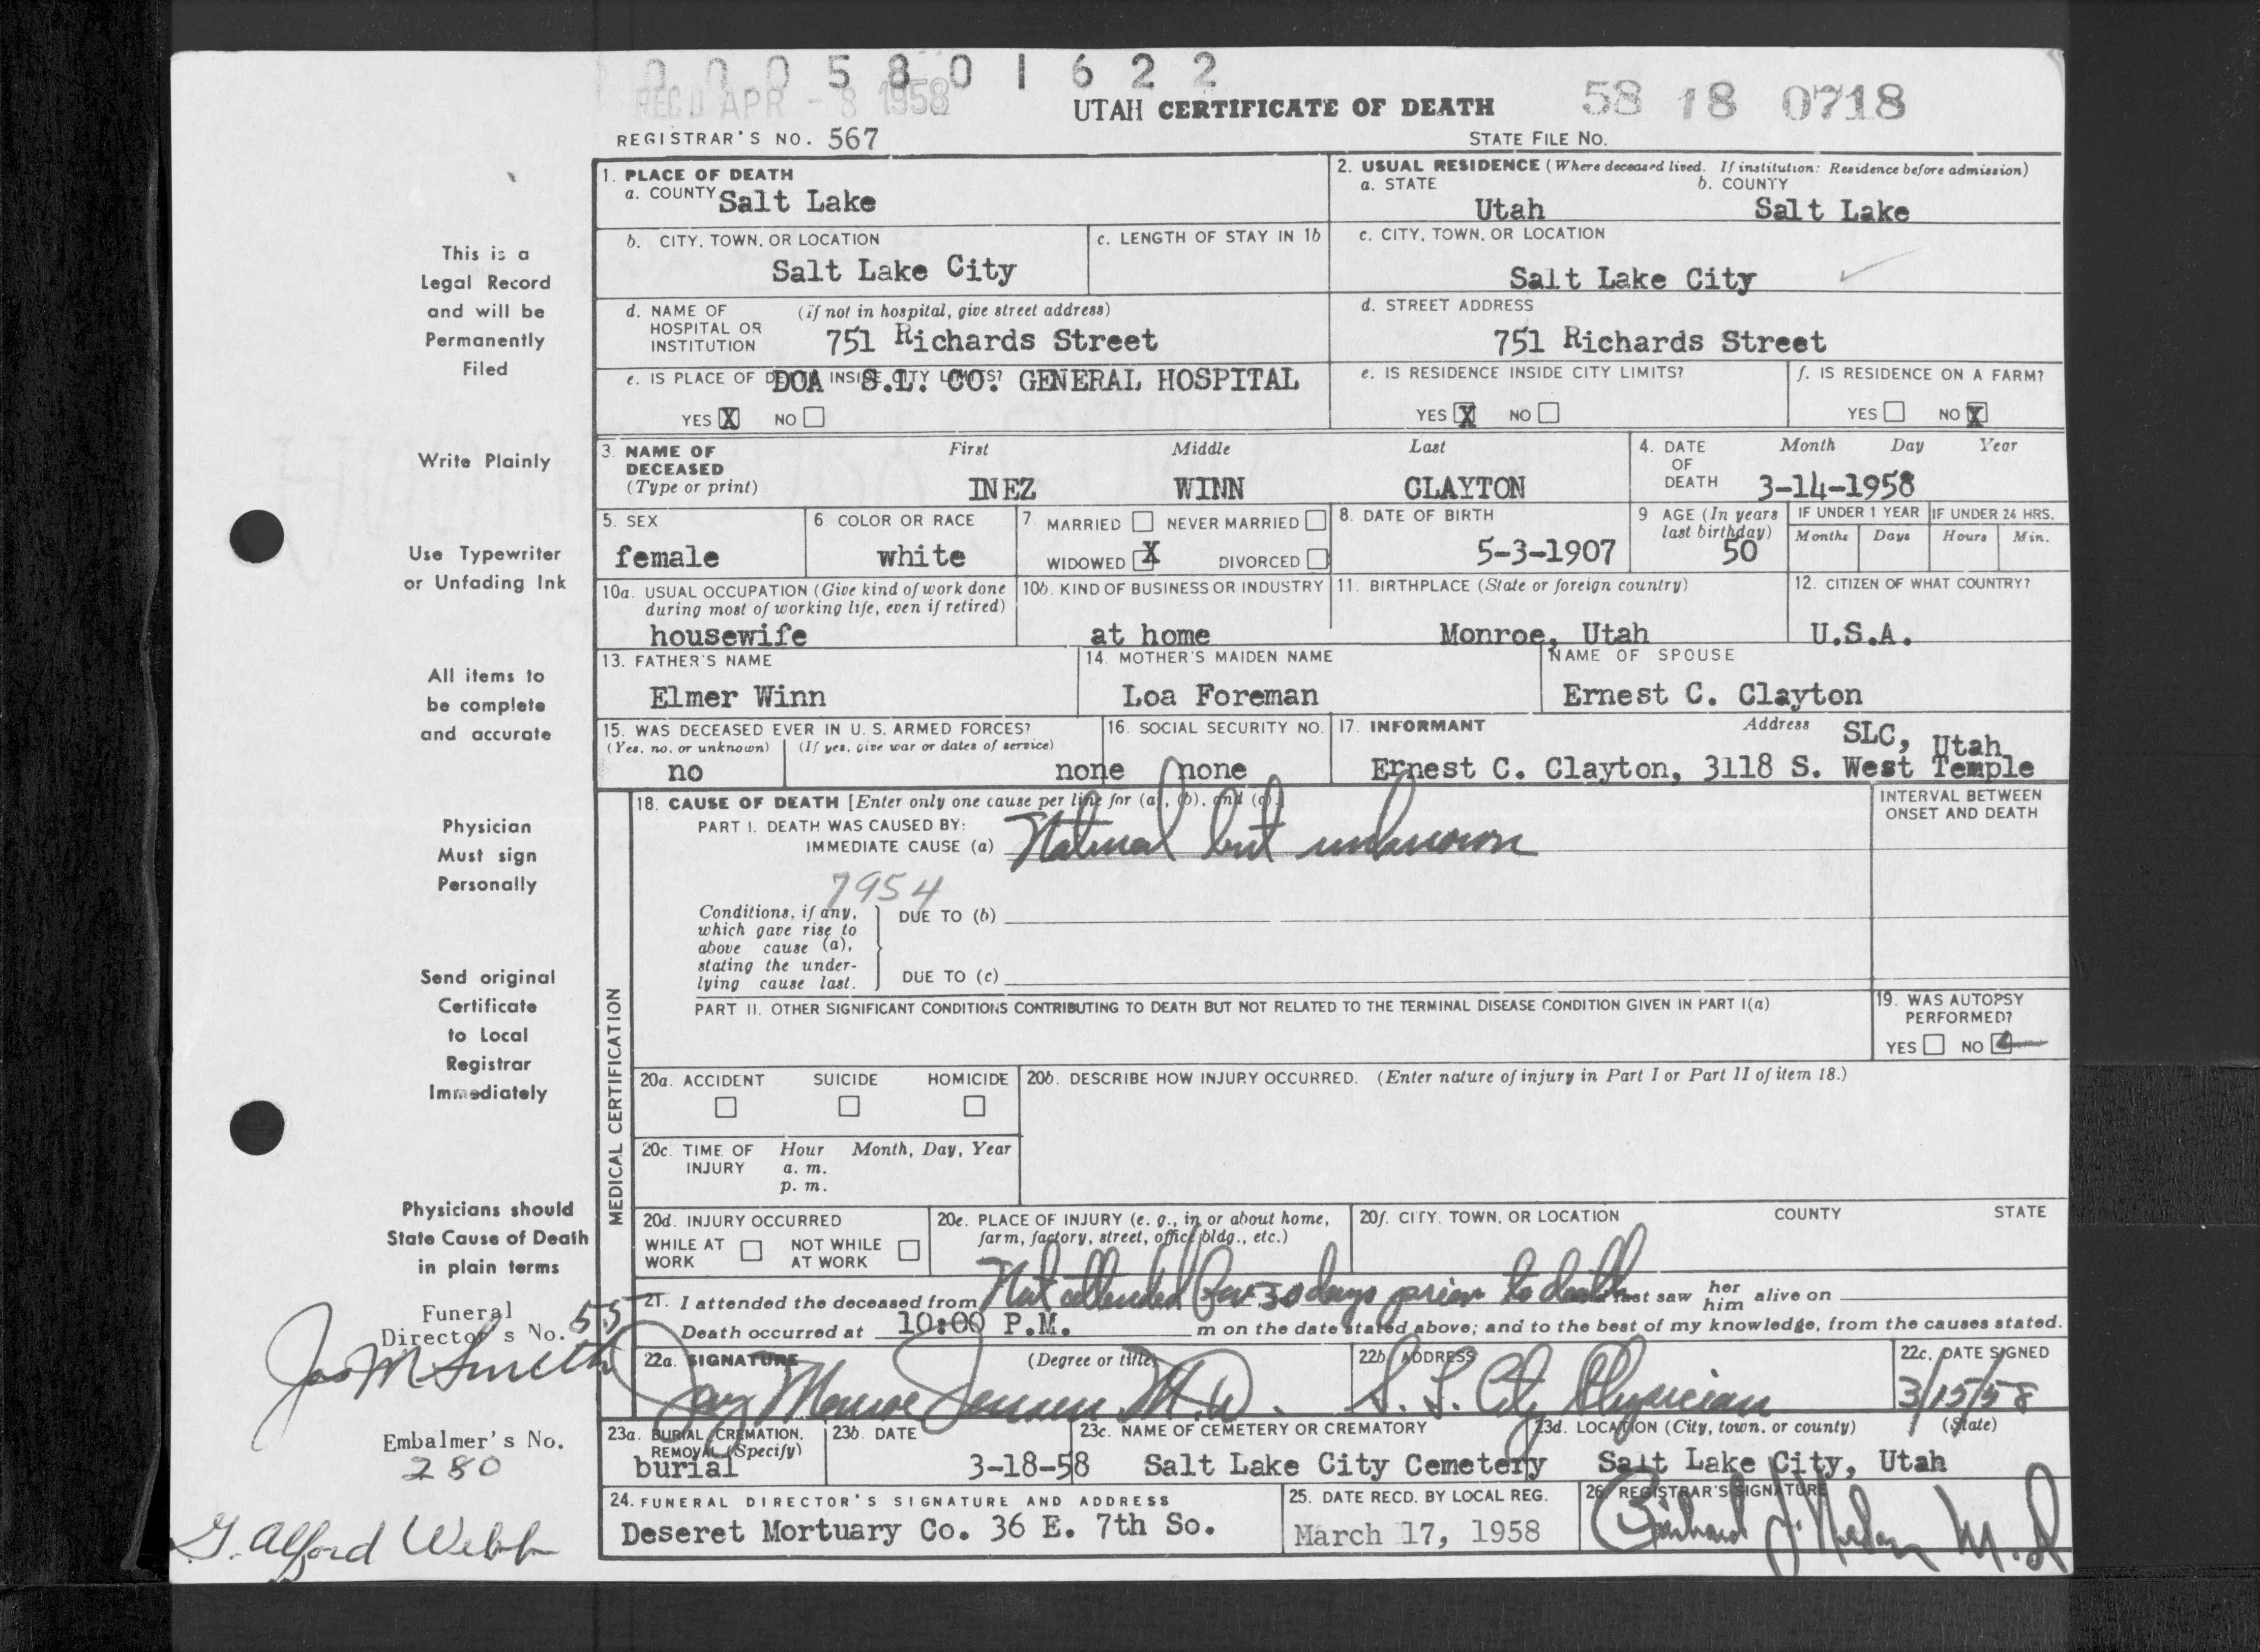 0 0 0 5 8 0 1 6 2 2
REC'D APR - 8 1958
UTAH CERTIFICATE OF DEATH
58 18 0718
REGISTRAR'S NO. 567
STATE FILE NO.
1. PLACE OF DEATH
a. COUNTY Salt Lake
2. USUAL RESIDENCE (Where deceased lived. If institution: Residence before admission)
a. STATE Utah
b. COUNTY Salt Lake
b. CITY, TOWN, OR LOCATION
Salt Lake City
c. LENGTH OF STAY IN 1b
c. CITY, TOWN, OR LOCATION
Salt Lake City
d. NAME OF HOSPITAL OR INSTITUTION (if not in hospital, give street address)
751 Richards Street
d. STREET ADDRESS
751 Richards Street
e. IS PLACE OF DEATH INSIDE CITY LIMITS?
DOA S.L. CO. GENERAL HOSPITAL
YES X NO
e. IS RESIDENCE INSIDE CITY LIMITS?
YES X NO
f. IS RESIDENCE ON A FARM?
YES NO X
3. NAME OF DECEASED (Type or print)
First Middle Last
INEZ WINN CLAYTON
4. DATE OF DEATH Month Day Year
3-14-1958
5. SEX
female
6. COLOR OR RACE
white
7. MARRIED NEVER MARRIED
WIDOWED X DIVORCED
8. DATE OF BIRTH
5-3-1907
9 AGE (In years last birthday)
50
IF UNDER 1 YEAR
Months Days
IF UNDER 24 HRS.
Hours Min.
10a. USUAL OCCUPATION (Give kind of work done during most of working life, even if retired)
housewife
10b. KIND OF BUSINESS OR INDUSTRY
at home
11. BIRTHPLACE (State or foreign country)
Monroe, Utah
12. CITIZEN OF WHAT COUNTRY?
U.S.A.
13. FATHER'S NAME
Elmer Winn
14. MOTHER'S MAIDEN NAME
Loa Foreman
NAME OF SPOUSE
Ernest C. Clayton
15. WAS DECEASED EVER IN U. S. ARMED FORCES?
(Yes, no, or unknown) (If yes, give war or dates of service)
no none
16. SOCIAL SECURITY NO.
none
17. INFORMANT Address
SLC, Utah
Ernest C. Clayton, 3118 S. West Temple
MEDICAL CERTIFICATION
18. CAUSE OF DEATH [Enter only one cause per line for (a), (b), and (c).]
PART I. DEATH WAS CAUSED BY:
IMMEDIATE CAUSE (a) Natural but unknown
7954
INTERVAL BETWEEN ONSET AND DEATH
Conditions, if any, which gave rise to above cause (a), stating the underlying cause last.
DUE TO (b)
DUE TO (c)
PART II. OTHER SIGNIFICANT CONDITIONS CONTRIBUTING TO DEATH BUT NOT RELATED TO THE TERMINAL DISEASE CONDITION GIVEN IN PART I(a)
19. WAS AUTOPSY PERFORMED?
YES NO
20a. ACCIDENT SUICIDE HOMICIDE
20b. DESCRIBE HOW INJURY OCCURRED. (Enter nature of injury in Part I or Part II of item 18.)
20c. TIME OF INJURY Hour Month, Day, Year
a. m.
p. m.
20d. INJURY OCCURRED
WHILE AT WORK NOT WHILE AT WORK
20e. PLACE OF INJURY (e. g., in or about home, farm, factory, street, office bldg., etc.)
20f. CITY, TOWN, OR LOCATION COUNTY STATE
21. I attended the deceased from Not attended for 30 days prior to death last saw her him alive on
Death occurred at 10:00 P.M. m on the date stated above; and to the best of my knowledge, from the causes stated.
22a. SIGNATURE (Degree or title)
Jay Monroe Jensen M.D.
22b. ADDRESS
S. L. City Physician
22c. DATE SIGNED
3/15/58
23a. BURIAL, CREMATION, REMOVAL (Specify)
burial
23b. DATE
3-18-58
23c. NAME OF CEMETERY OR CREMATORY
Salt Lake City Cemetery
23d. LOCATION (City, town, or county) (State)
Salt Lake City, Utah
24. FUNERAL DIRECTOR'S SIGNATURE AND ADDRESS
Deseret Mortuary Co. 36 E. 7th So.
25. DATE RECD. BY LOCAL REG.
March 17, 1958
26. REGISTRAR'S SIGNATURE
M.D
This is a
Legal Record
and will be
Permanently
Filed
Write Plainly
Use Typewriter
or Unfading Ink
All items to
be complete
and accurate
Physician
Must sign
Personally
Send original
Certificate
to Local
Registrar
Immediately
Physicians should
State Cause of Death
in plain terms
Funeral
Director's No. 55
Jas M Smith
Embalmer's No.
280
G. Alford Webb